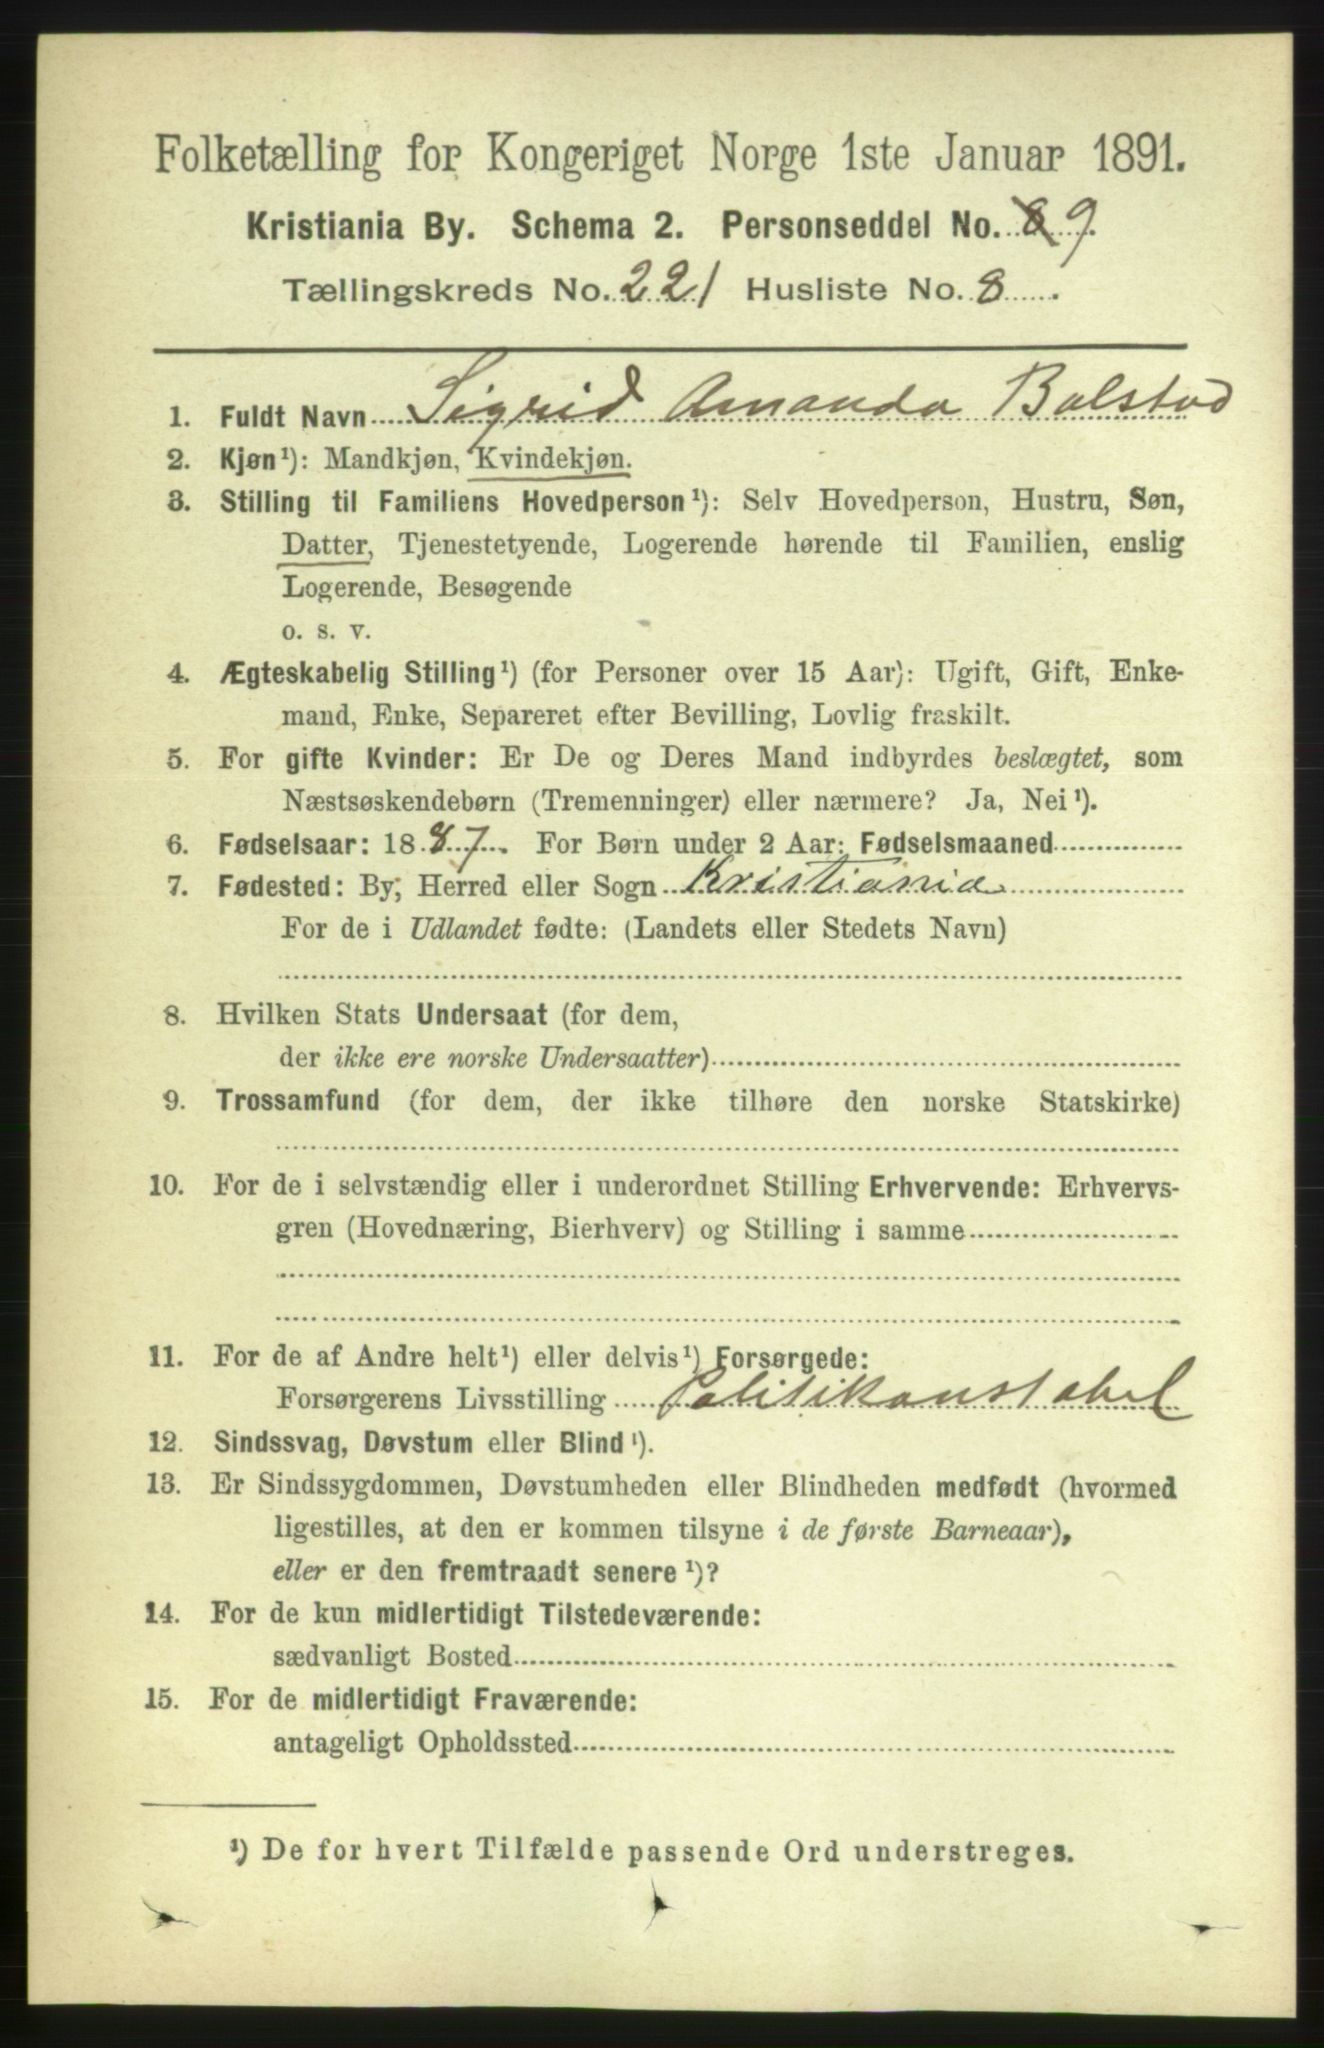 Folketælling for Kongeriget Norge 1ste Januar 1891.
Kristiania By. Schema 2. Personseddel No. 9.
Tællingskreds No. 221 Husliste No. 8.
1. Fuldt Navn Sigrid Amanda Bolstad
2. Kjøn¹): Mandkjøn, Kvindekjøn.
3. Stilling til Familiens Hovedperson¹): Selv Hovedperson, Hustru, Søn,
Datter, Tjenestetyende, Logerende hørende til Familien, enslig
Logerende, Besøgende
o. s. v.
4. Ægteskabelig Stilling¹) (for Personer over 15 Aar): Ugift, Gift, Enke-
mand, Enke, Separeret efter Bevilling, Lovlig fraskilt.
5. For gifte Kvinder: Er De og Deres Mand indbyrdes beslægtet, som
Næstsøskendebørn (Tremenninger) eller nærmere? Ja, Nei¹).
6. Fødselsaar: 1887. For Børn under 2 Aar: Fødselsmaaned
7. Fødested: By, Herred eller Sogn Kristiania
For de i Udlandet fødte: (Landets eller Stedets Navn)
8. Hvilken Stats Undersaat (for dem,
der ikke ere norske Undersaatter)
9. Trossamfund (for dem, der ikke tilhøre den norske Statskirke)
10. For de i selvstændig eller i underordnet Stilling Erhvervende: Erhvervs-
gren (Hovednæring, Bierhverv) og Stilling i samme
11. For de af Andre helt¹) eller delvis¹) Forsørgede:
Forsørgerens Livsstilling Politikonstabel
12. Sindssvag, Døvstum eller Blind¹).
13. Er Sindssygdommen, Døvstumheden eller Blindheden medfødt (hvormed
ligestilles, at den er kommen tilsyne i de første Barneaar),
eller er den fremtraadt senere¹)?
14. For de kun midlertidigt Tilstedeværende:
sædvanligt Bosted
15. For de midlertidigt Fraværende:
antageligt Opholdssted
¹) De for hvert Tilfælde passende Ord understreges.